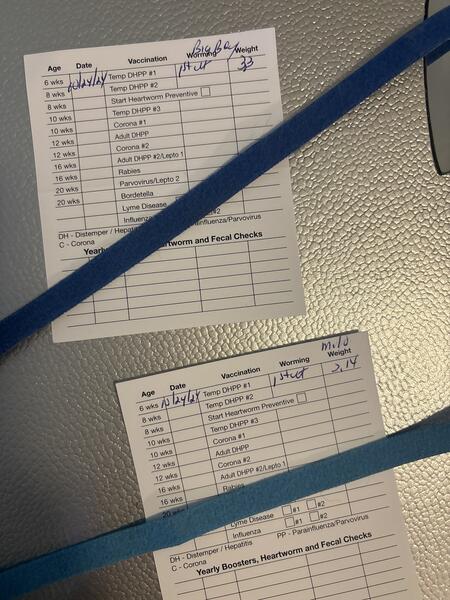 Big Boy
Age Date Vaccination Worming Weight
6 wks 10/24/24 Temp DHPP #1 1st
8 wks Temp DHPP #2
8 wks Start Heartworm Preventive
10 wks Temp DHPP #3
10 wks Corona #1
12 wks Adult DHPP
12 wks Corona #2
16 wks Adult DHPP #2/Lepto 1
16 wks Rabies
20 wks Parvovirus/Lepto 2
20 wks Bordetella
Lyme Disease #2
Influenza
DH - Distemper / Hepatitis Parainfluenza/Parvovirus
C - Corona
Yearly Heartworm and Fecal Checks
Milo
Age Date Vaccination Worming Weight
6 wks 10/24/24 Temp DHPP #1 1st 2.14
8 wks Temp DHPP #2
8 wks Start Heartworm Preventive
10 wks Temp DHPP #3
10 wks Corona #1
12 wks Adult DHPP
12 wks Corona #2
16 wks Adult DHPP #2/Lepto 1
16 wks Rabies
20 wks
Lyme Disease #1 #2
Influenza #1 #2
DH - Distemper / Hepatitis PP - Parainfluenza/Parvovirus
C - Corona
Yearly Boosters, Heartworm and Fecal Checks